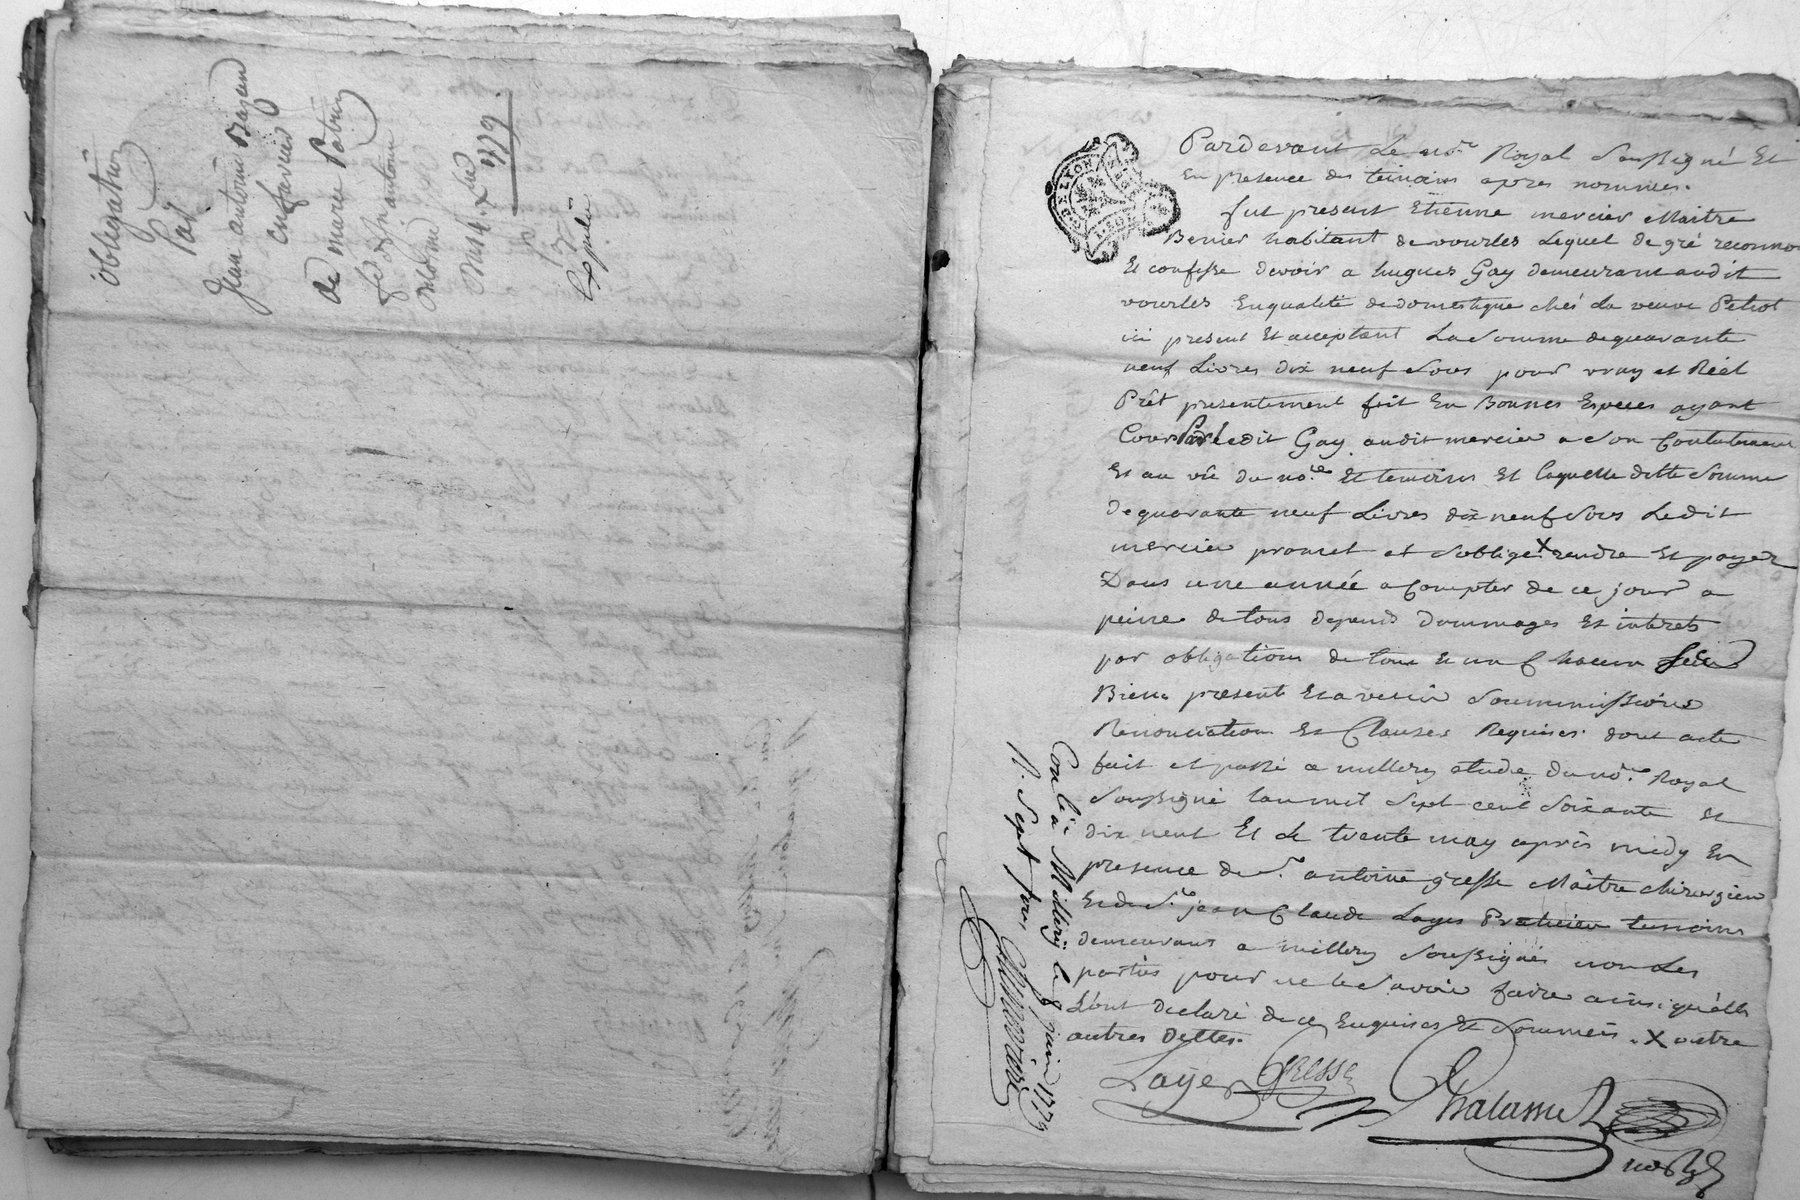 obligation
Par
Jean antoine Bazeau
en faveur
de marie Patrin
onolome
1779
Expediée
G. DE LYON
Pardevant Le no.re Royal Soussigné Et
En presence des temoins apres nommés.
fut present Etienne mercier Maitre
Benier habitant de vourles Lequel de gré reconno
Et confesse devoir a hugues Gay demeurant audit
vourles En qualité de domestique chés La veuve Petrot
ici present Et acceptant La Somme de quarante
neuf Livres dix neuf Sous pour vray et Réel
Prêt presentement fait En Bonnes Especes ayant
Cours Par Ledit Gay audit mercier a Son Contentement
Et au vû du no.re Et temoins Et laquelle ditte Somme
De quarante neuf Livres dix neuf Sous Ledit
mercier promet et S'oblige X rendre Et payer
Dans une année a Compter de ce jour a
peine de tous depends Dommages Et interets
par obligation de tous Et un Chacun Ses
Biens presents Et a venir Soummissions
Renonciation Et Clauses Requises. dont acte
fait et passé a millery etude du no.re Royal
Soussigné L'an mil Sept cent Soixante et
dix neuf Et Le trente may après midy En
presence de S.r antoine gresse Maître chirurgien
Et de S.r jean Claude Layer Praticien temoins
demeurants a millery Soussignés non Les
parties pour ne le Savoir faire ainsi qu'elles
L'ont declaré de ce Enquises Et Sommées. X outre
autres Dettes.
Conlé à Millery le 8 juin 1779
R. Sept Sous
Layer Gresse
Thalamel